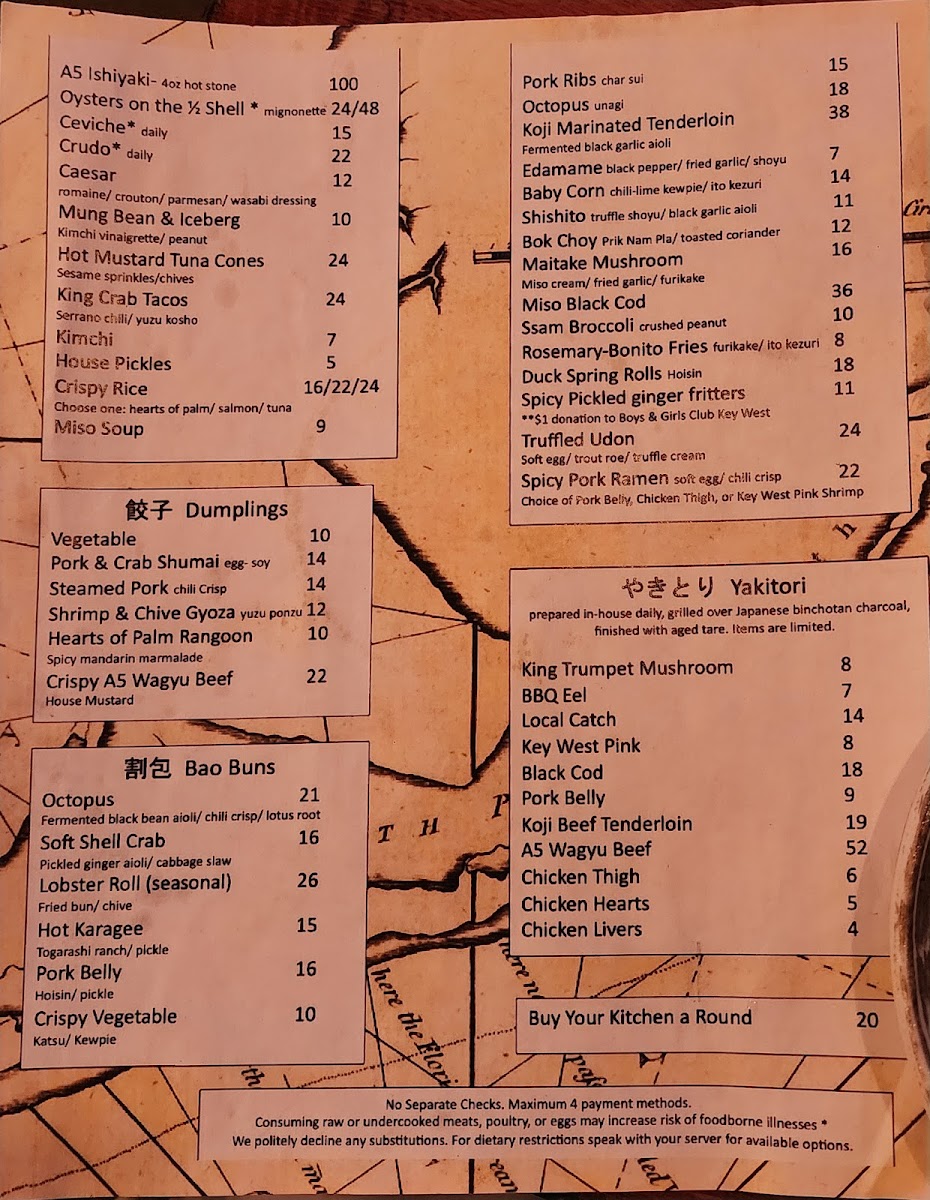 A5 Ishiyaki- 4oz hot stone 100
Oysters on the ½ Shell * mignonette 24/48
Ceviche* daily 15
Crudo* daily 22
Caesar 12
romaine/ crouton/ parmesan/ wasabi dressing
Mung Bean & Iceberg 10
Kimchi vinaigrette/ peanut
Hot Mustard Tuna Cones 24
Sesame sprinkles/chives
King Crab Tacos 24
Serrano chili/ yuzu kosho
Kimchi 7
House Pickles 5
Crispy Rice 16/22/24
Choose one: hearts of palm/ salmon/ tuna
Miso Soup 9
餃子 Dumplings
Vegetable 10
Pork & Crab Shumai egg- soy 14
Steamed Pork chili Crisp 14
Shrimp & Chive Gyoza yuzu ponzu 12
Hearts of Palm Rangoon 10
Spicy mandarin marmalade
Crispy A5 Wagyu Beef 22
House Mustard
割包 Bao Buns
Octopus 21
Fermented black bean aioli/ chili crisp/ lotus root
Soft Shell Crab 16
Pickled ginger aioli/ cabbage slaw
Lobster Roll (seasonal) 26
Fried bun/ chive
Hot Karagee 15
Togarashi ranch/ pickle
Pork Belly 16
Hoisin/ pickle
Crispy Vegetable 10
Katsu/ Kewpie
Pork Ribs char sui 15
Octopus unagi 18
Koji Marinated Tenderloin 38
Fermented black garlic aioli
Edamame black pepper/ fried garlic/ shoyu 7
Baby Corn chili-lime kewpie/ ito kezuri 14
Shishito truffle shoyu/ black garlic aioli 11
Bok Choy Prik Nam Pla/ toasted coriander 12
Maitake Mushroom 16
Miso cream/ fried garlic/ furikake
Miso Black Cod 36
Ssam Broccoli crushed peanut 10
Rosemary-Bonito Fries furikake/ ito kezuri 8
Duck Spring Rolls Hoisin 18
Spicy Pickled ginger fritters 11
**$1 donation to Boys & Girls Club Key West
Truffled Udon 24
Soft egg/ trout roe/ truffle cream
Spicy Pork Ramen soft egg/ chili crisp 22
Choice of Pork Belly, Chicken Thigh, or Key West Pink Shrimp
やきとり Yakitori
prepared in-house daily, grilled over Japanese binchotan charcoal,
finished with aged tare. Items are limited.
King Trumpet Mushroom 8
BBQ Eel 7
Local Catch 14
Key West Pink 8
Black Cod 18
Pork Belly 9
Koji Beef Tenderloin 19
A5 Wagyu Beef 52
Chicken Thigh 6
Chicken Hearts 5
Chicken Livers 4
Buy Your Kitchen a Round 20
No Separate Checks. Maximum 4 payment methods.
Consuming raw or undercooked meats, poultry, or eggs may increase risk of foodborne illnesses *
We politely decline any substitutions. For dietary restrictions speak with your server for available options.
T H P
here the Flori